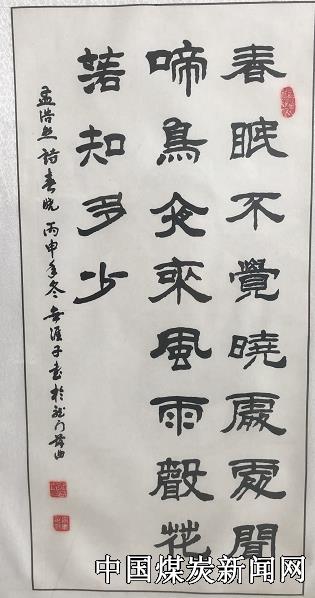 春眠不覺曉處處聞
啼鳥夜來風雨聲花
落知多少
孟浩然詩春晓丙申年冬無涯子書於龙门曲
中国煤炭新闻网